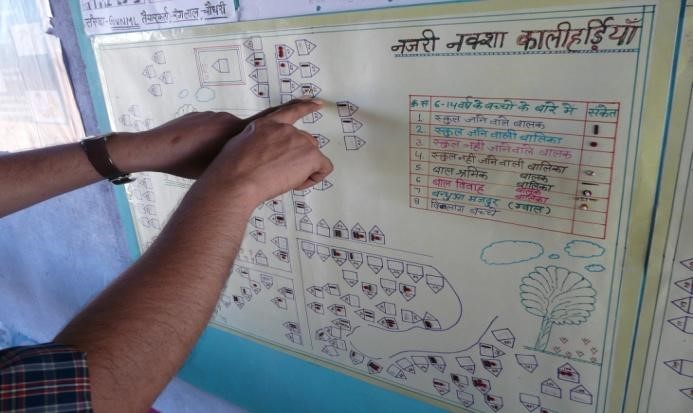 संस्था-GVNML तैयारकर्ता-रंगलाल चौधरी
नजरी नक्शा कालीहर्ड़ियाँ
क्र.स 6-14 वर्ष के बच्चों के बारे में संकेत
1. स्कूल जाने वाले बालक
2. स्कूल जाने वाली बालिका
3. स्कूल नहीं जाने वाले बालक
4. स्कूल नहीं जाने वाली बालिका
5. बाल श्रमिक बालक
बालिका
6 बाल विवाह बालक
बालिका
7 बन्धुआ मजदूर (ग्वाल)
8 विकलांग बच्चे